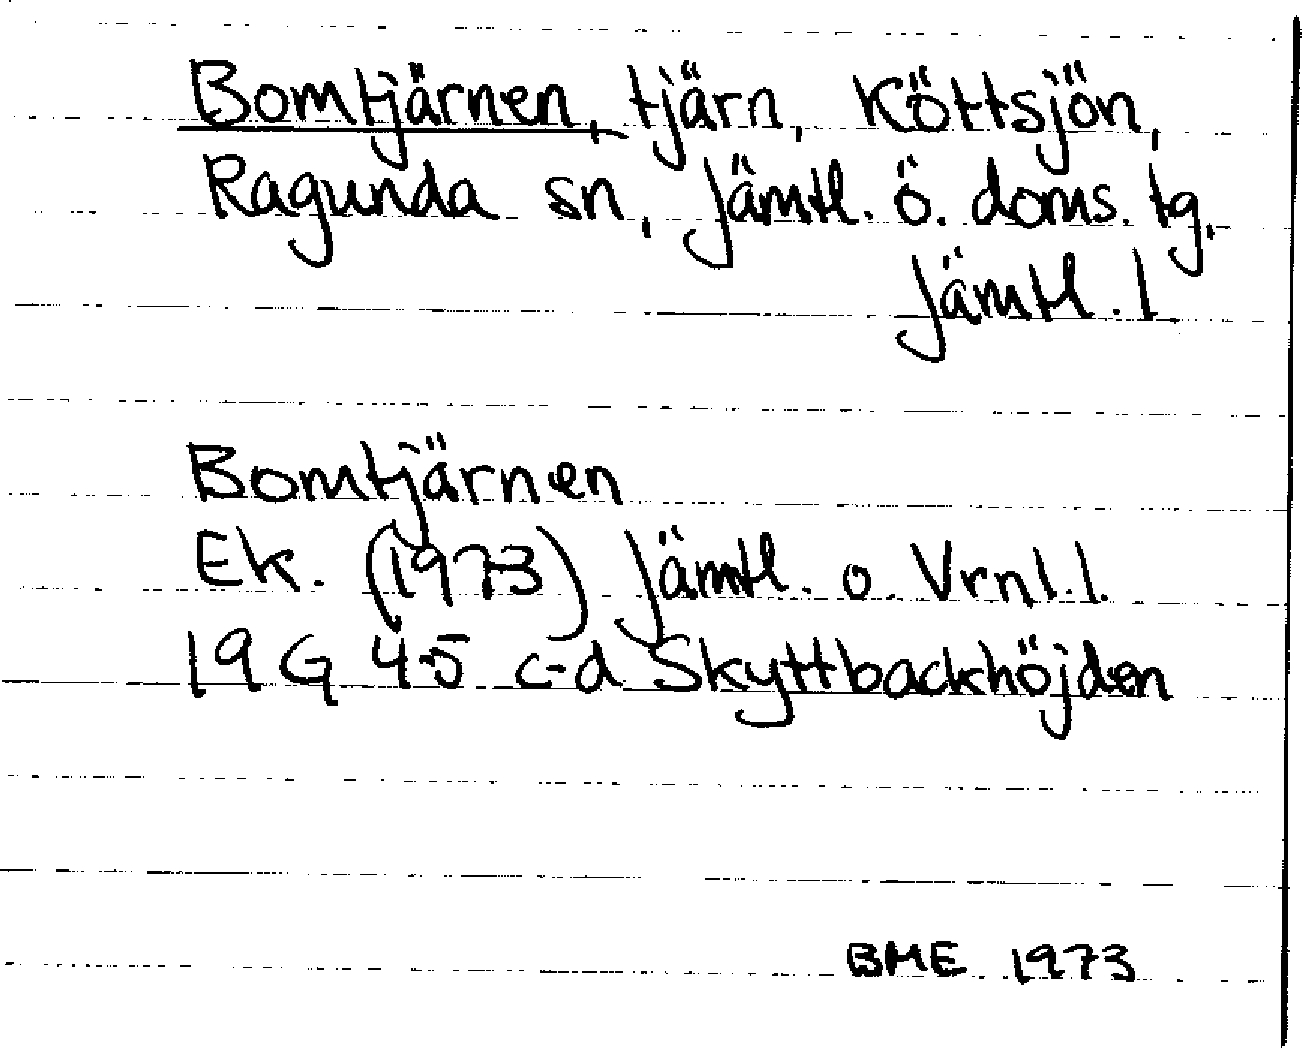 Bomtjärnen, tjärn, Köttsjön,
Ragunda sn, Jämtl. ö. doms. tg,
Jämtl. l
Bomtjärnen
Ek. (1973) Jämtl. o. Vrnl. l.
19 G 4-5 c-d Skyttbackhöjden
BME 1973